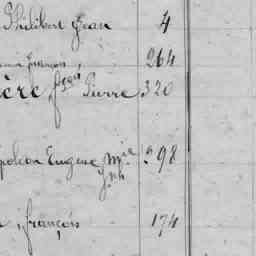 Philibert Jean 4
François 264
ère, fçois Pierre 320
poléon Eugène Mie 298
Jph
, françois 174